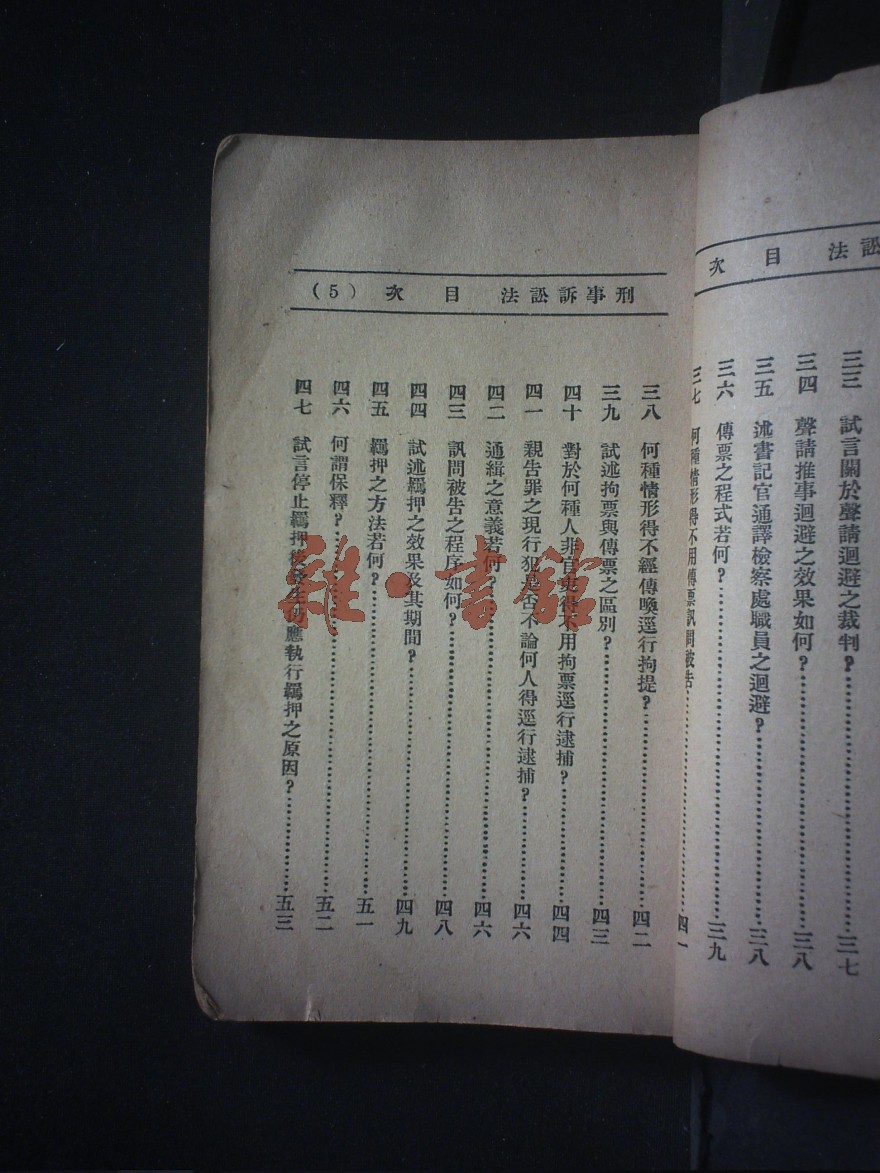 法訟
目
次
三三 試言關於聲請迴避之裁判?……三七
三四 聲請推事迴避之效果如何?……三八
三五 述書記官通譯檢察處職員之迴避?……三八
三六 傳票之程式若何?……三九
三七 何種情形得不用傳票訊問被告……四一
刑事訴訟法 目 次 (5)
三八 何種情形得不經傳喚逕行拘提?……四二
三九 試述拘票與傳票之區別?……四三
四十 對於何種人非官吏得不用拘票逕行逮捕?……四四
四一 親告罪之現行犯是否不論何人得逕行逮捕?……四六
四二 通緝之意義若何?……四六
四三 訊問被告之程序如何?……四八
四四 試述羈押之效果及其期間?……四九
四五 羈押之方法若何?……五一
四六 何謂保釋?……五二
四七 試言停止羈押後發生仍應執行羈押之原因?……五三
雜·書館